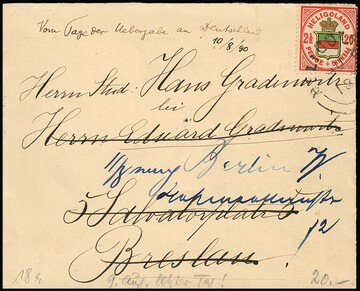 Vom Tage der Uebergabe an Deutschland
10/8/90
HELIGOLAND
2½ 20
PENCE PFENNIG
Herrn Stud: Hans Gradenwitz
bei
Herrn Eduard Gradenwitz
Berlin
Salvatorplatz
12
Breslau
9. Aug. letzter Tag!
18
20.-